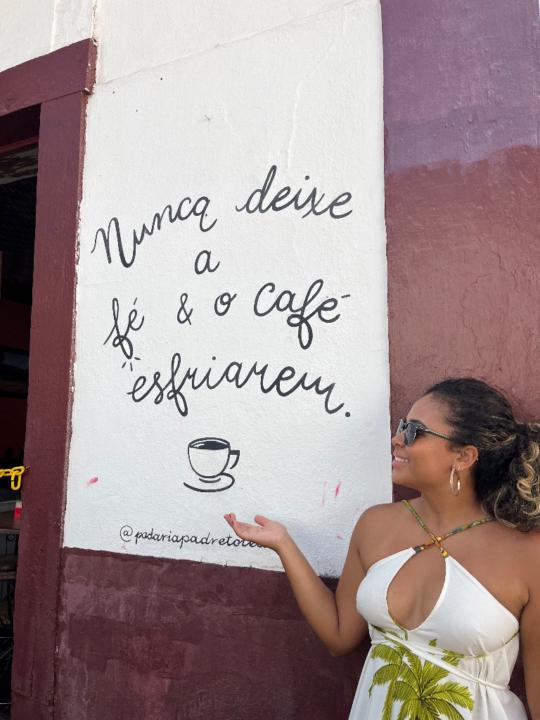 Nunca deixe
a
fé & o café
esfriarem.